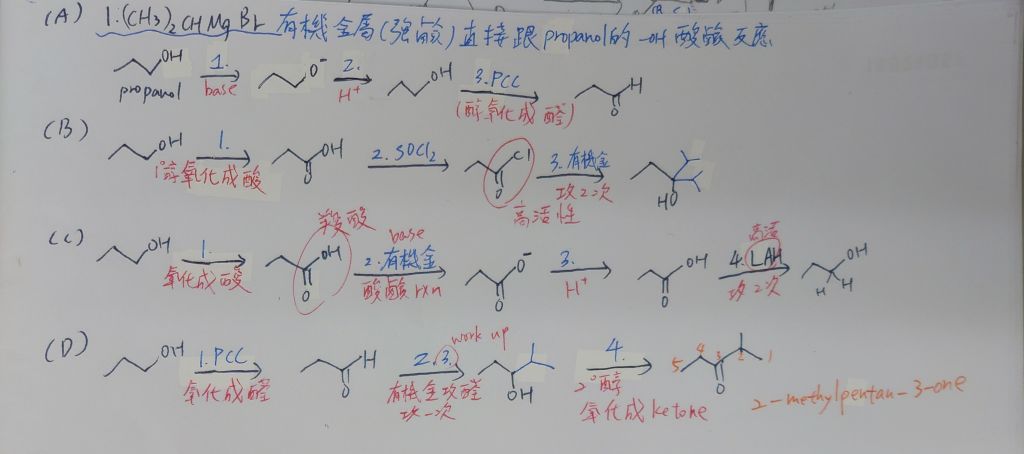 (A) 1.(CH3)2CHMgBr 有機金屬(強鹼)直接跟propanol的-OH酸鹼反應
OH 1. O⁻ 2. OH 3.PCC H
propanol base H+ (醇氧化成醛) O
(B)
OH 1. OH 2. SOCl2 Cl 3.有機金
1°醇氧化成酸 O O 攻2次 HO
高活性
(C) 羧酸 base 高活
OH 1. OH 2.有機金 O⁻ 3. OH 4. LAH OH
氧化成酸 O 酸鹼rxn O H+ O 攻2次 H H
(D) work up
OH 1.PCC H 2.3. 4. 5 4 3 2 1
氧化成醛 O 有機金攻醛 OH 2°醇 O
攻一次 氧化成ketone 2-methylpentan-3-one